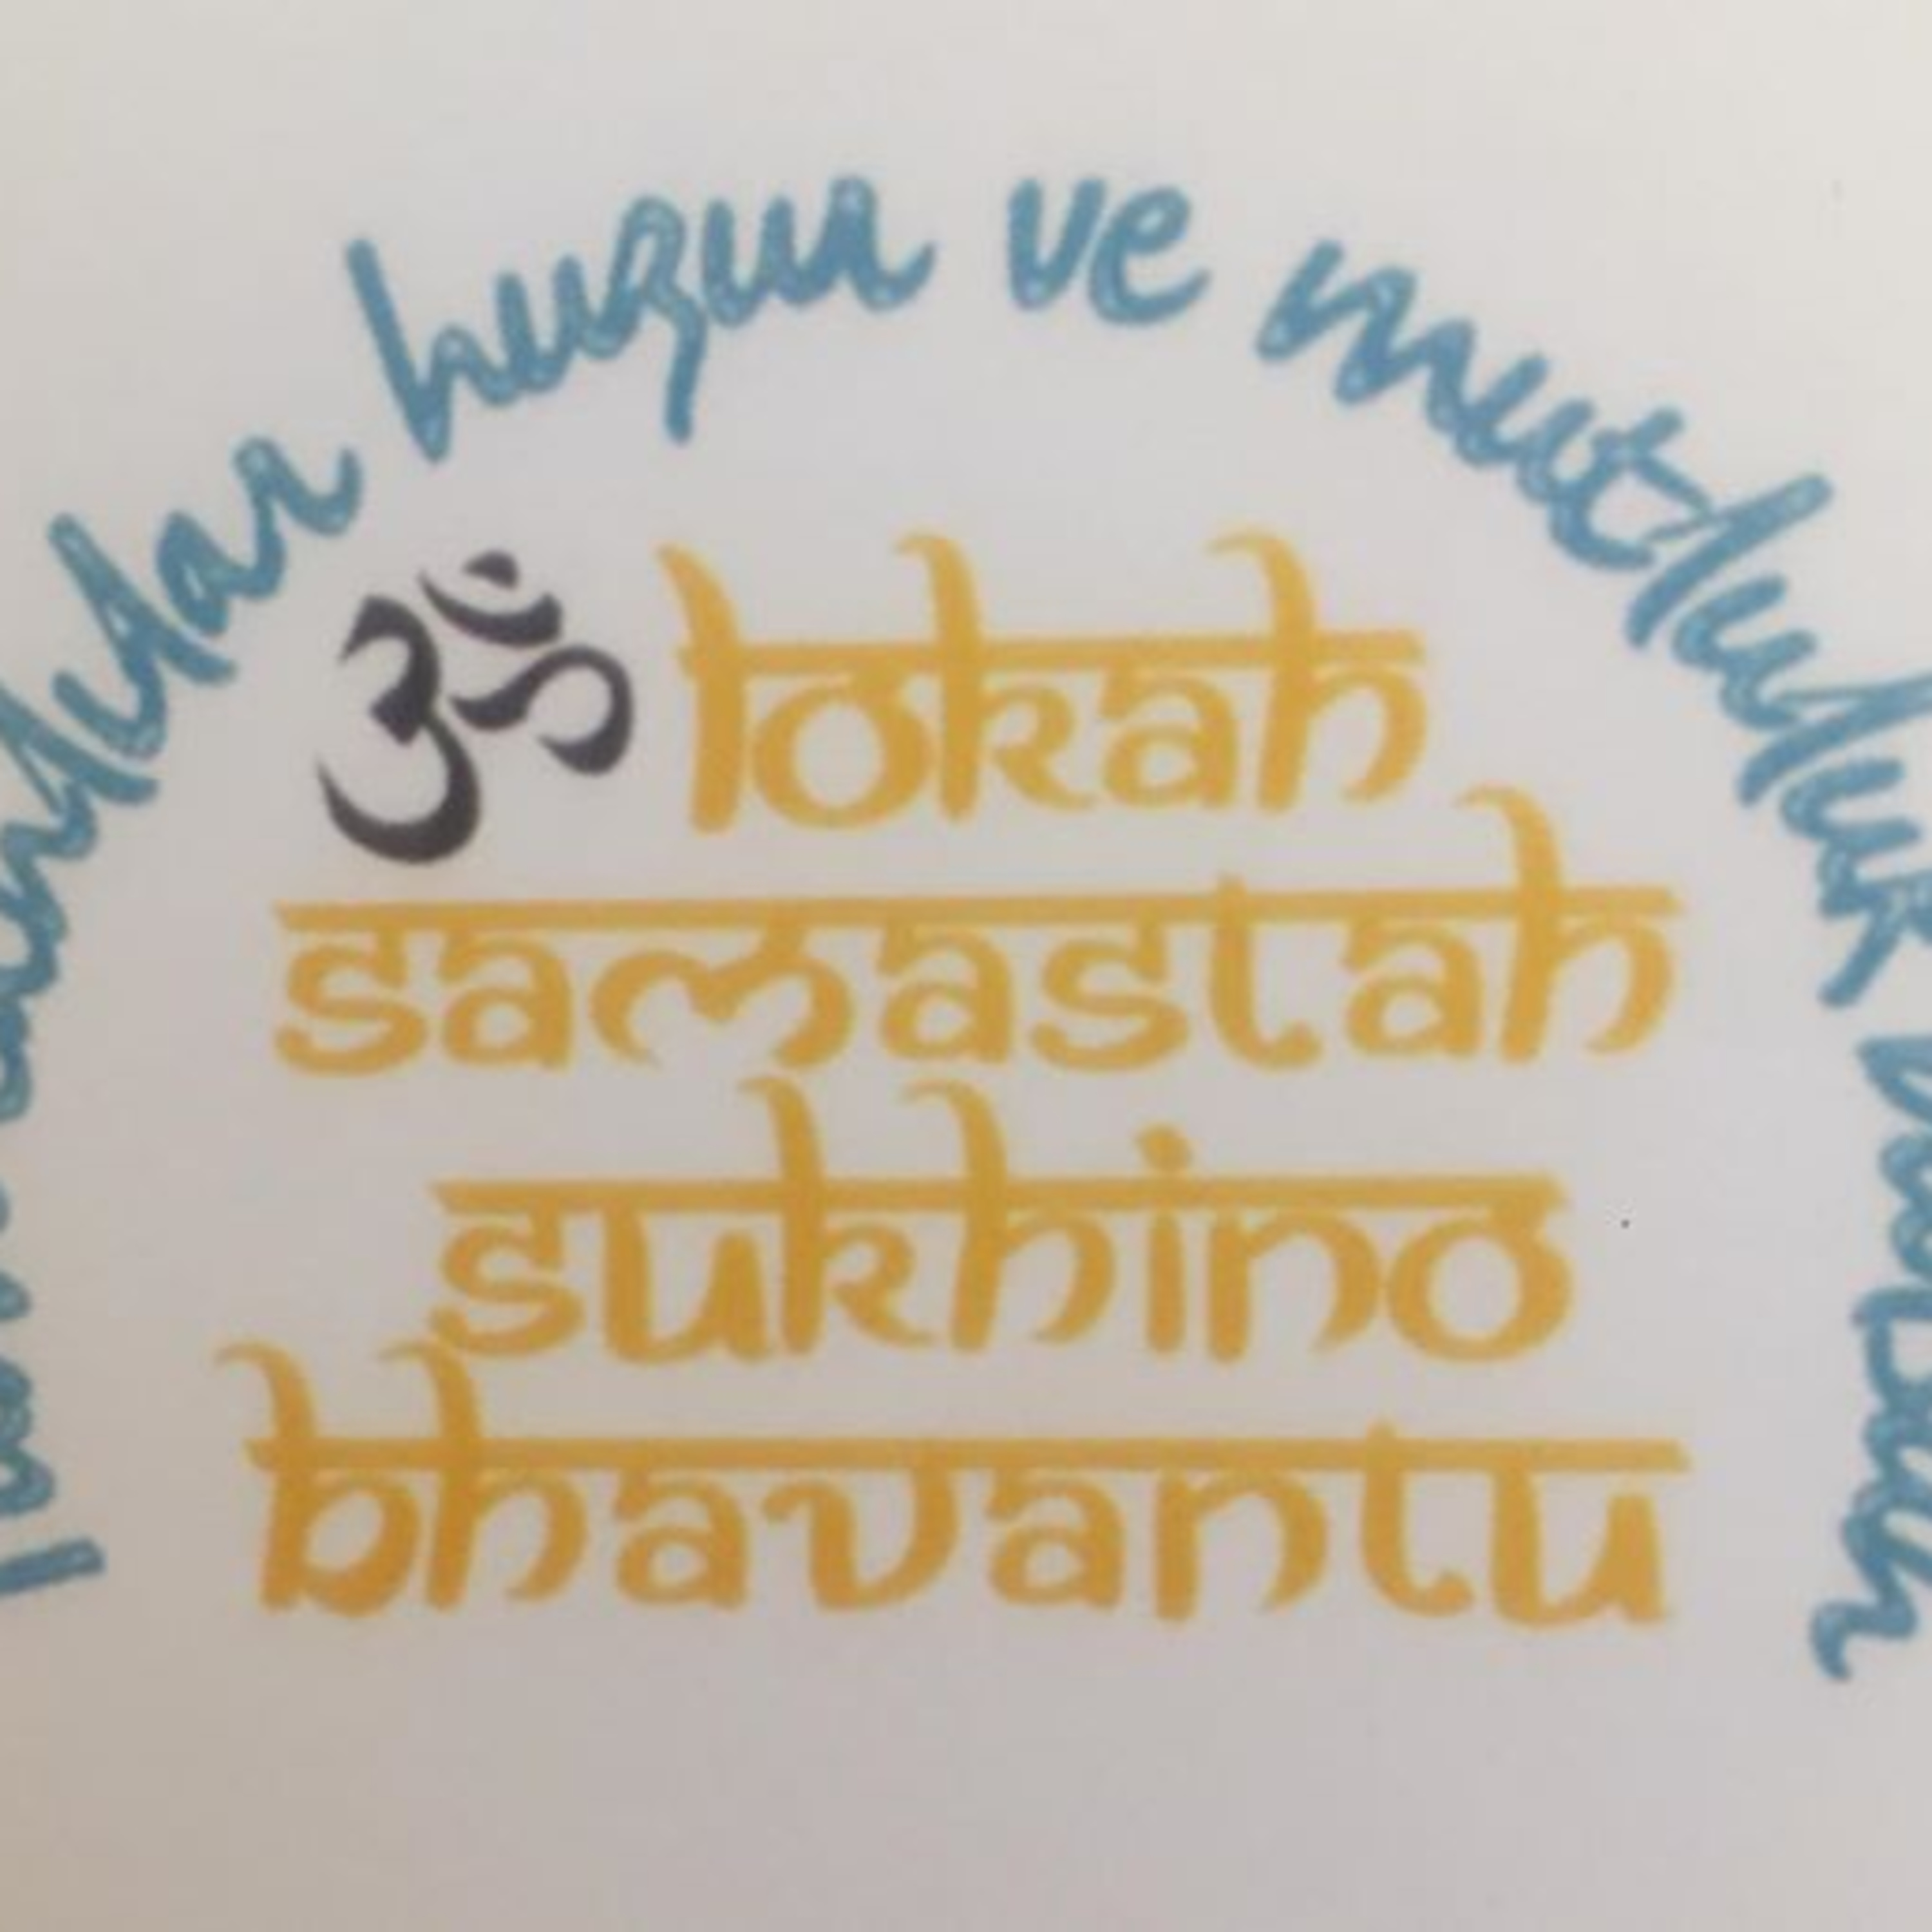 huzur ve mutluluk bulsun
ॐ lokah
samastah
sukhino
bhavantu